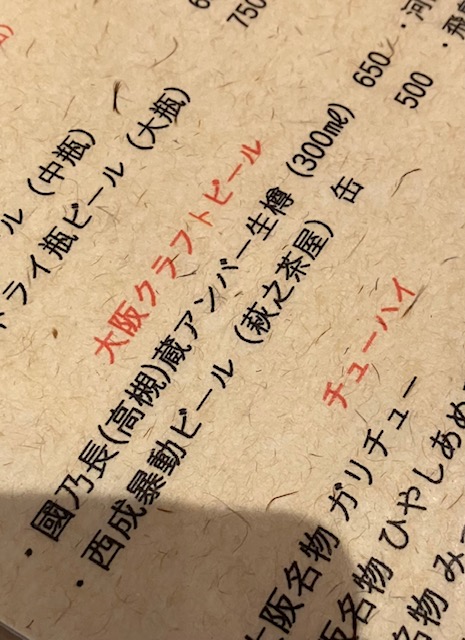 ル（中瓶）
ドライ瓶ビール（大瓶） 750
大阪クラフトビール
・國乃長(高槻)蔵アンバー生樽（300㎖） 650
・西成暴動ビール（萩之茶屋）缶 500
チューハイ
大阪名物 ガリチュー
阪名物 ひやしあめ
名物 み
・河
・飛